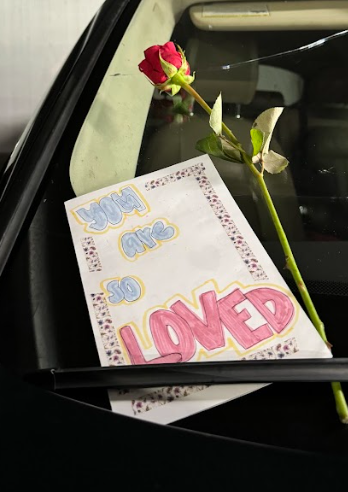 you
are
so
LOVED